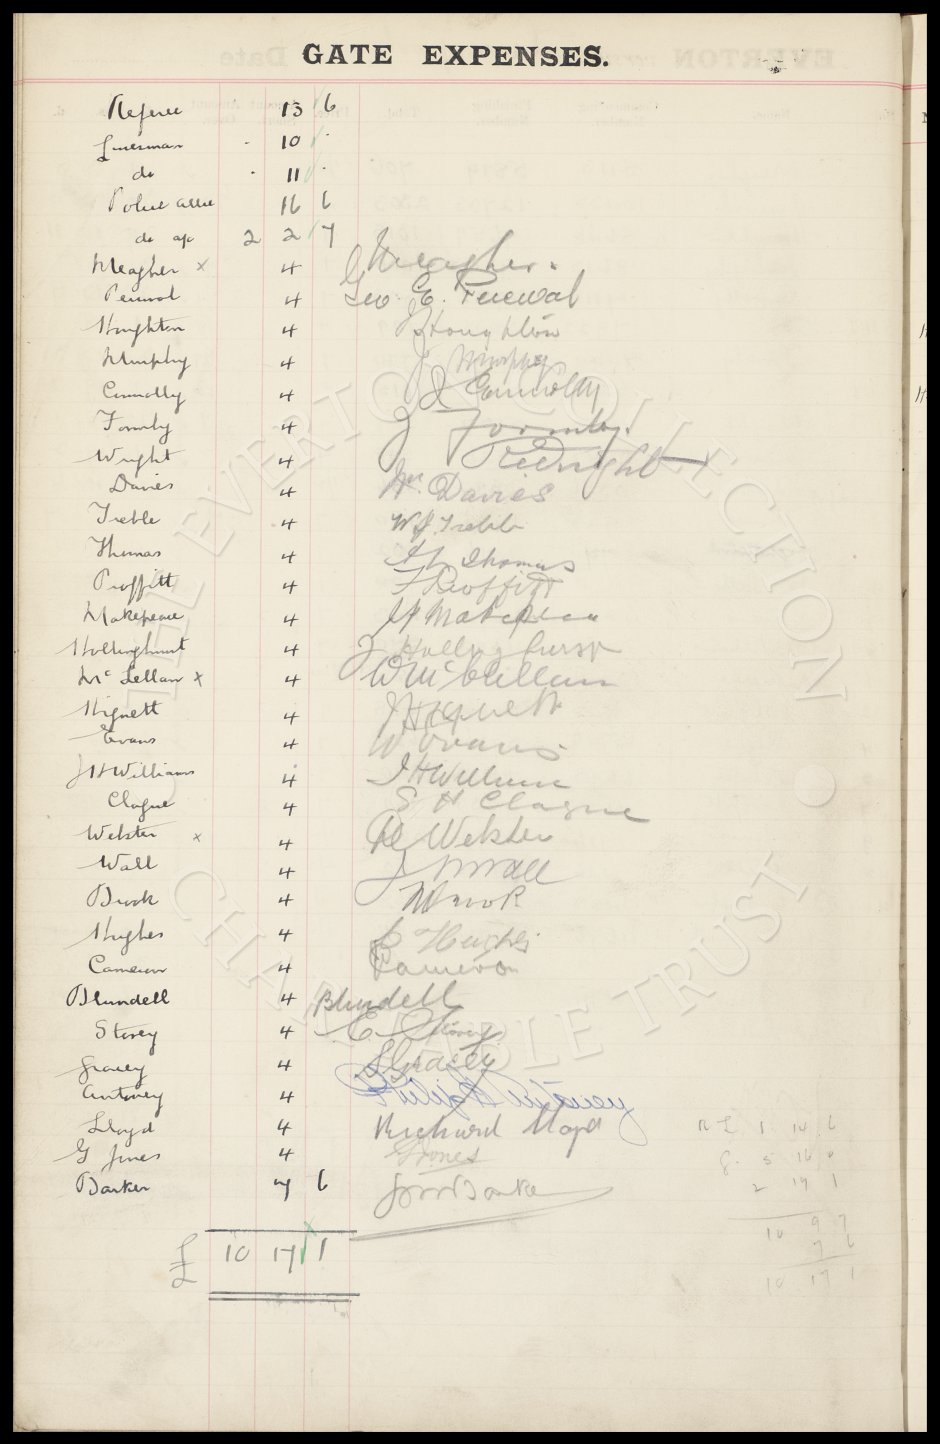 GATE EXPENSES.
Referee 13 6
Linesman . 10 .
do . 11 .
Police 16 6
do 2 2 7
Meagher x 4 Meagher.
Percival 4 Geo. E. Percival
Houghton 4 Houghton
Murphy 4 J Murphy
Connolly 4 J Connolly
Formby 4 J Formby.
Wright 4 Wright
Davies 4 Wm Davies
Treble 4 W J Treble
Thomas 4 Thomas
Proffitt 4 F Proffitt
Makepeace 4 Makepeace
Hollinghurst 4 J Hollinghurst
McLellan x 4 W McLellan
Hignett 4 J Hignett
Evans 4 W Evans
J H Williams 4 J H Williams
Clague 4 E H Clague
Webster x 4 Webster
Wall 4 J Wall
Brook 4 Brook
Hughes 4 Hughes
Cameron 4 Cameron
Blundell 4 Blundell
Storey 4 E Storey
Gracey 4 Gracey
Antoney 4 Philip Antoney
Lloyd 4 Richard Lloyd
G Jones 4 G Jones
Barker 7 6 Barker
1 14 6
5 16 0
2 19 1
10 9 7
7 6
10 17 1
£ 10 17 1
THE EVERTON COLLECTION CHARITABLE TRUST ©